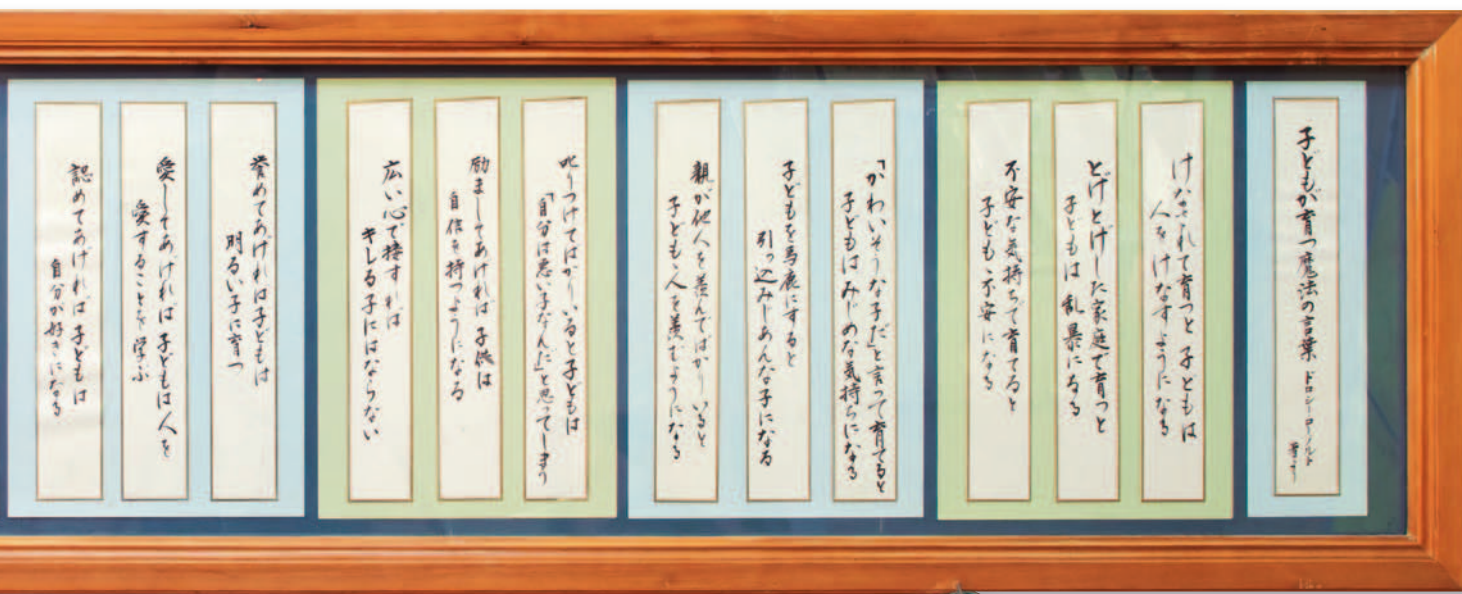 子どもが育つ魔法の言葉 ドロシー・ロー・ノルト
けなされて育つと 子どもは
人を けなすようになる
とげとげした家庭で育つと
子どもは 乱暴になる
不安な気持ちで育てると
子どもも不安になる
「かわいそうな子だ」と言って育てると
子どもはみじめな気持ちになる
子どもを馬鹿にすると
引っ込みじあんな子になる
親が他人を羨んでばかりいると
子どもも人を羨むようになる
叱りつけてばかりいると子どもは
「自分は悪い子なんだ」と思ってしまう
励ましてあげれば 子供は
自信を持つようになる
広い心で接すれば
キレる子にはならない
誉めてあげれば子どもは
明るい子に育つ
愛してあげれば 子どもは人を
愛することを学ぶ
認めてあげれば 子どもは
自分が好きになる